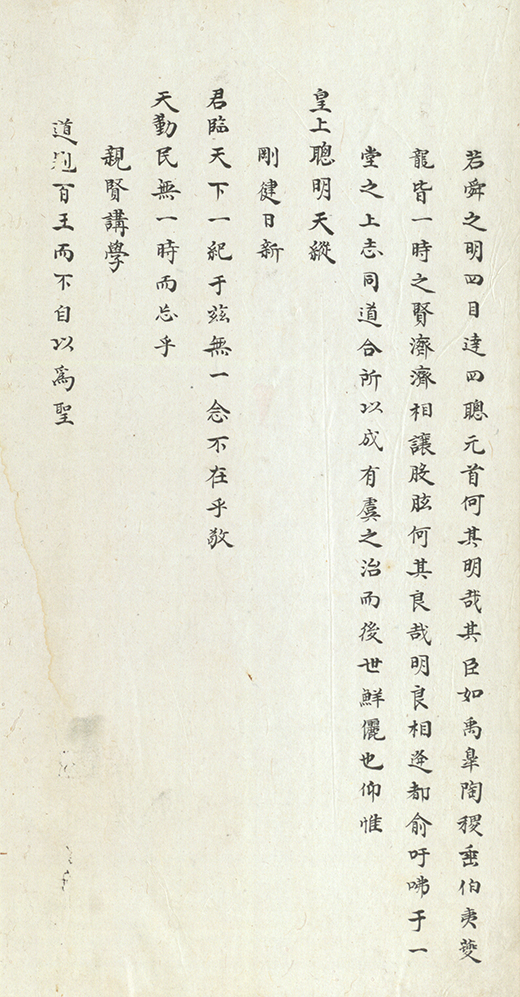 若舜之明四目達四聰元首何其明哉其臣如禹皋陶稷垂伯夷夔
龍皆一時之賢濟濟相讓股肱何其良哉明良相逢都俞吁咈于一
堂之上志同道合所以成有虞之治而後世鮮儷也仰惟
皇上聰明天縱
剛健日新
君臨天下一紀于茲無一念不在乎敬
天勤民無一時而忘乎
親賢講學
道冠百王而不自以爲聖